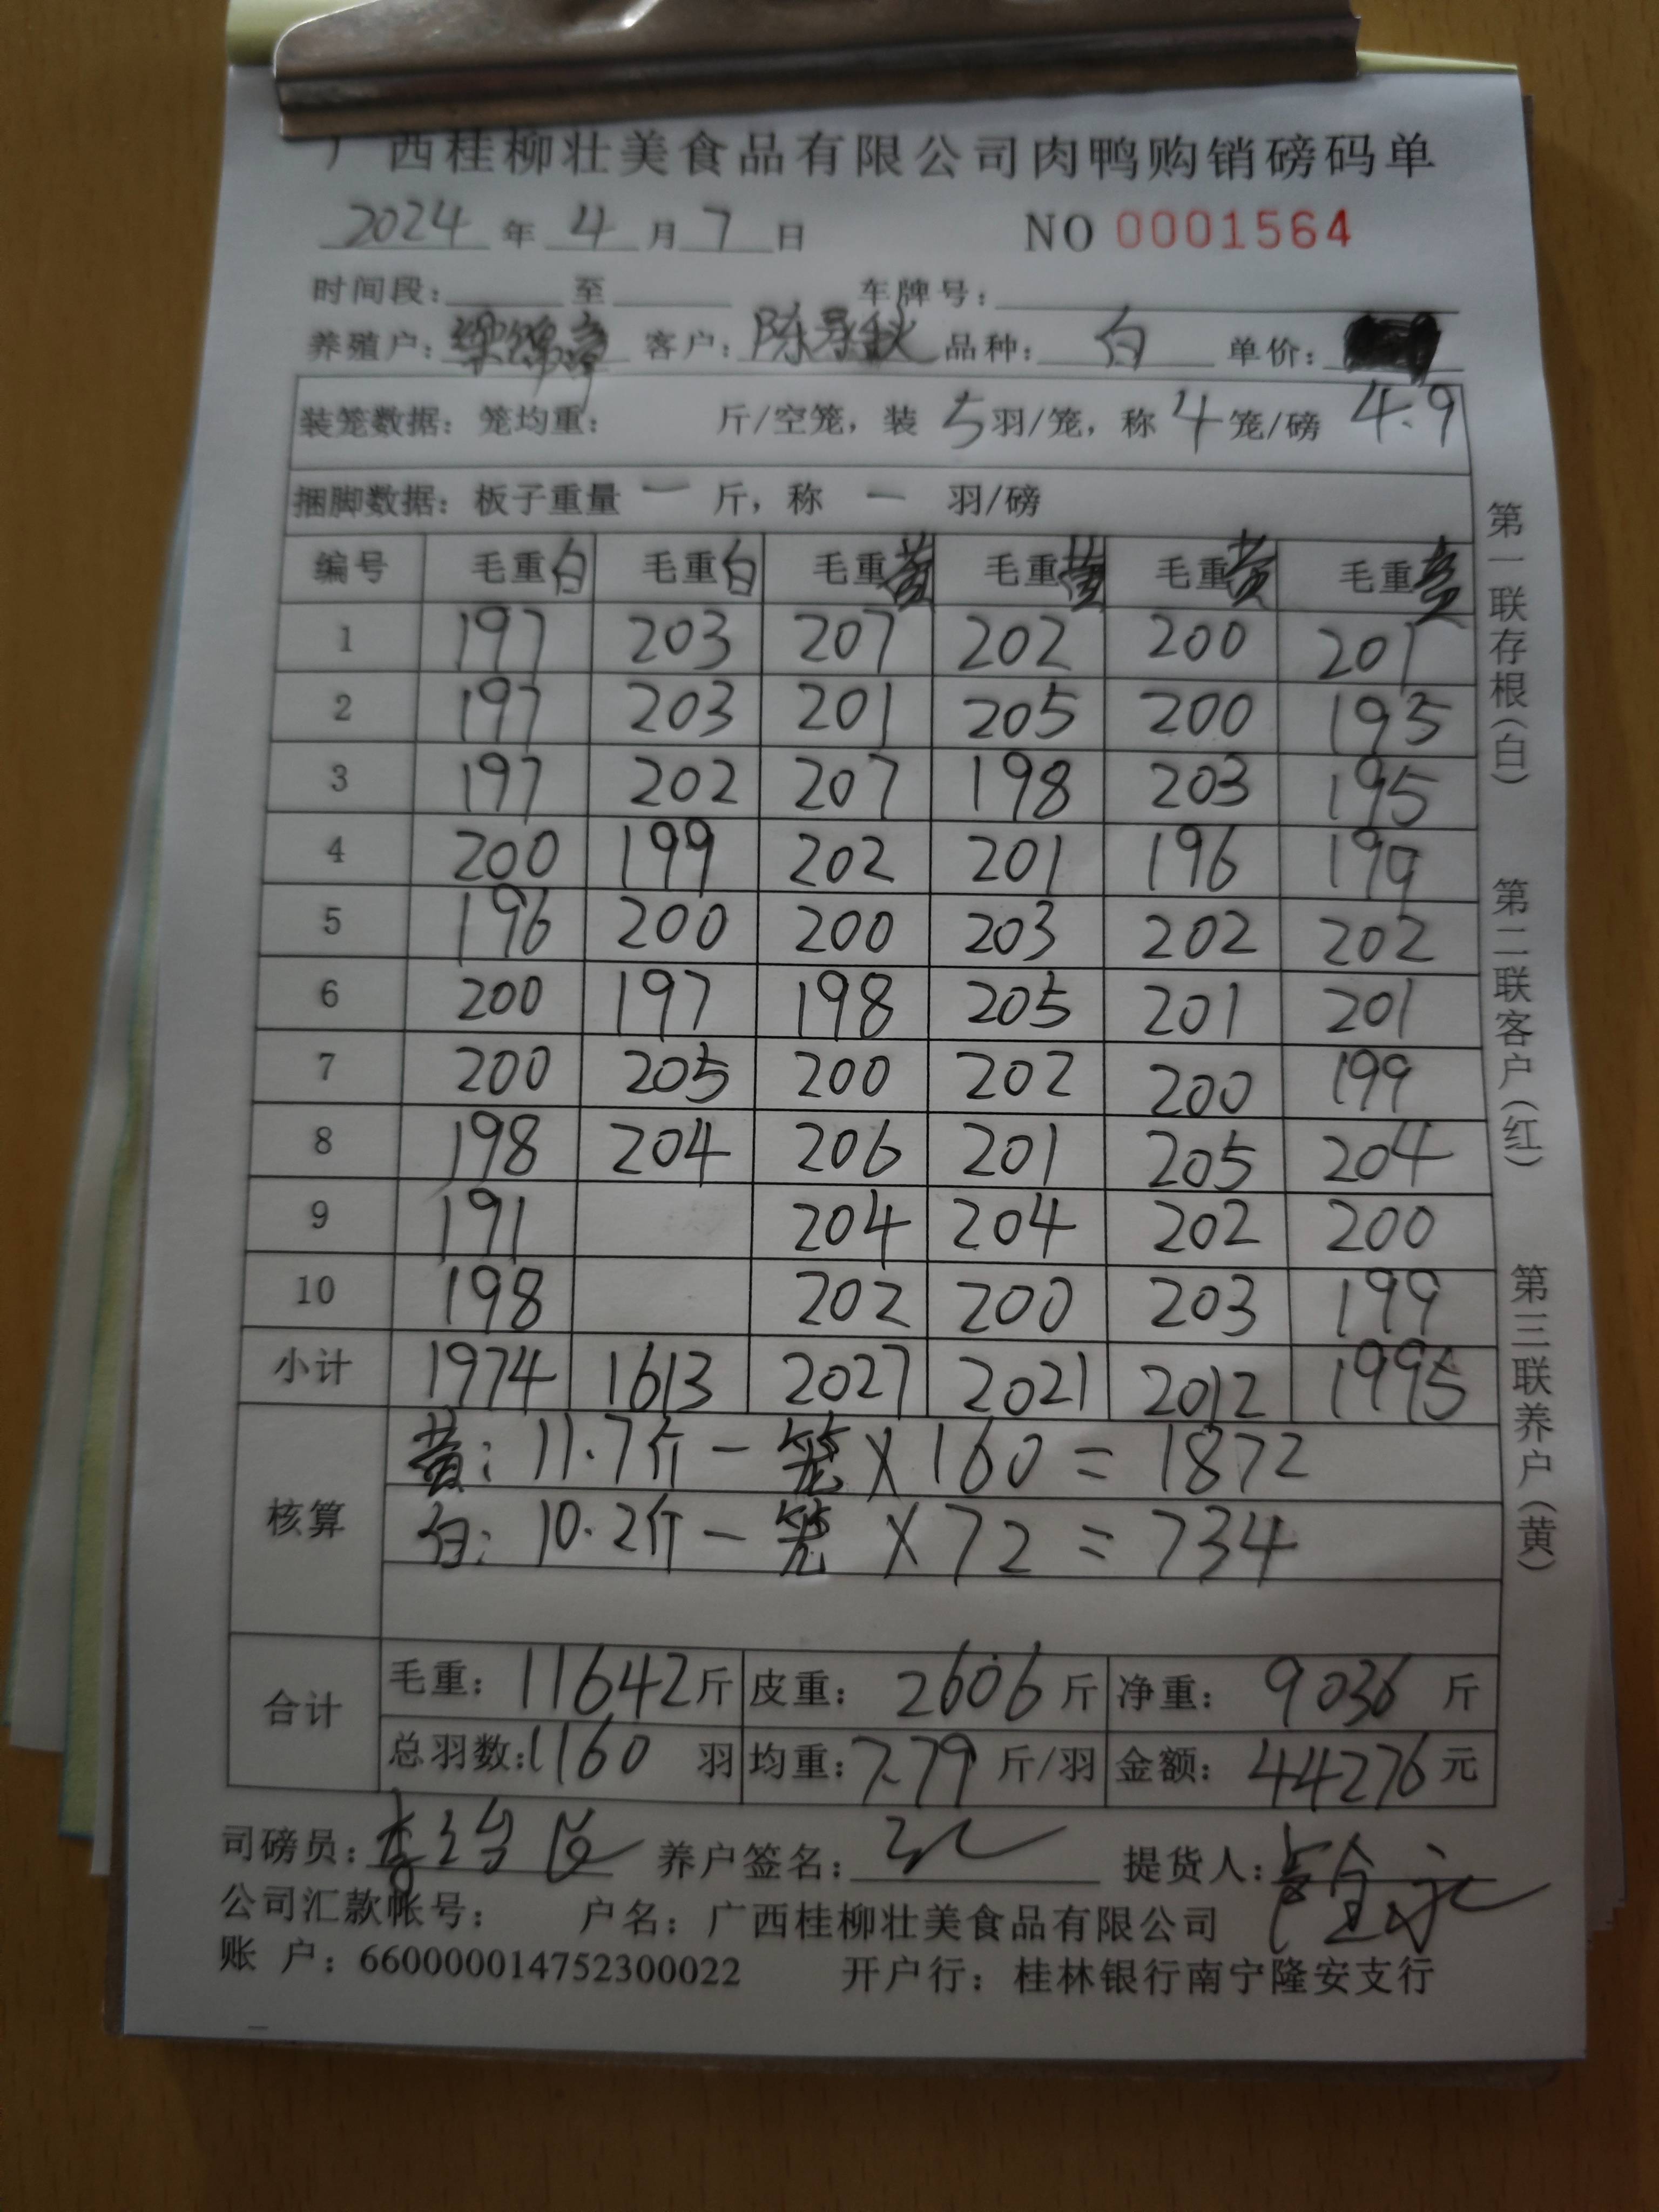 广西桂柳壮美食品有限公司肉鸭购销磅码单
2024 年 4 月 7 日 NO 0001564
时间段: 至 车牌号:
养殖户: 客户: 陈 秋 品种: 白 单价:
装笼数据: 笼均重: 斤/空笼, 装 5 羽/笼, 称 4 笼/磅 4.9
捆脚数据: 板子重量 一 斤, 称 一 羽/磅
编号 毛重白 毛重白 毛重黄 毛重黄 毛重黄 毛重黄
1 197 203 207 202 200 201
2 197 203 201 205 200 195
3 197 202 207 198 203 195
4 200 199 202 201 196 199
5 196 200 200 203 202 202
6 200 197 198 205 201 201
7 200 205 200 202 200 199
8 198 204 206 201 205 204
9 191 204 204 202 200
10 198 202 200 203 199
小计 1974 1613 2027 2021 2012 1995
核算
黄: 11.7斤一笼×160=1872
白: 10.2斤一笼×72=734
合计
毛重: 11642斤 皮重: 2606斤 净重: 9036斤
总羽数: 1160 羽 均重: 7.79 斤/羽 金额: 44276元
司磅员: 养户签名: 提货人:
公司汇款帐号: 户名: 广西桂柳壮美食品有限公司
账 户: 660000014752300022 开户行: 桂林银行南宁隆安支行
第一联存根(白)
第二联客户(红)
第三联养户(黄)